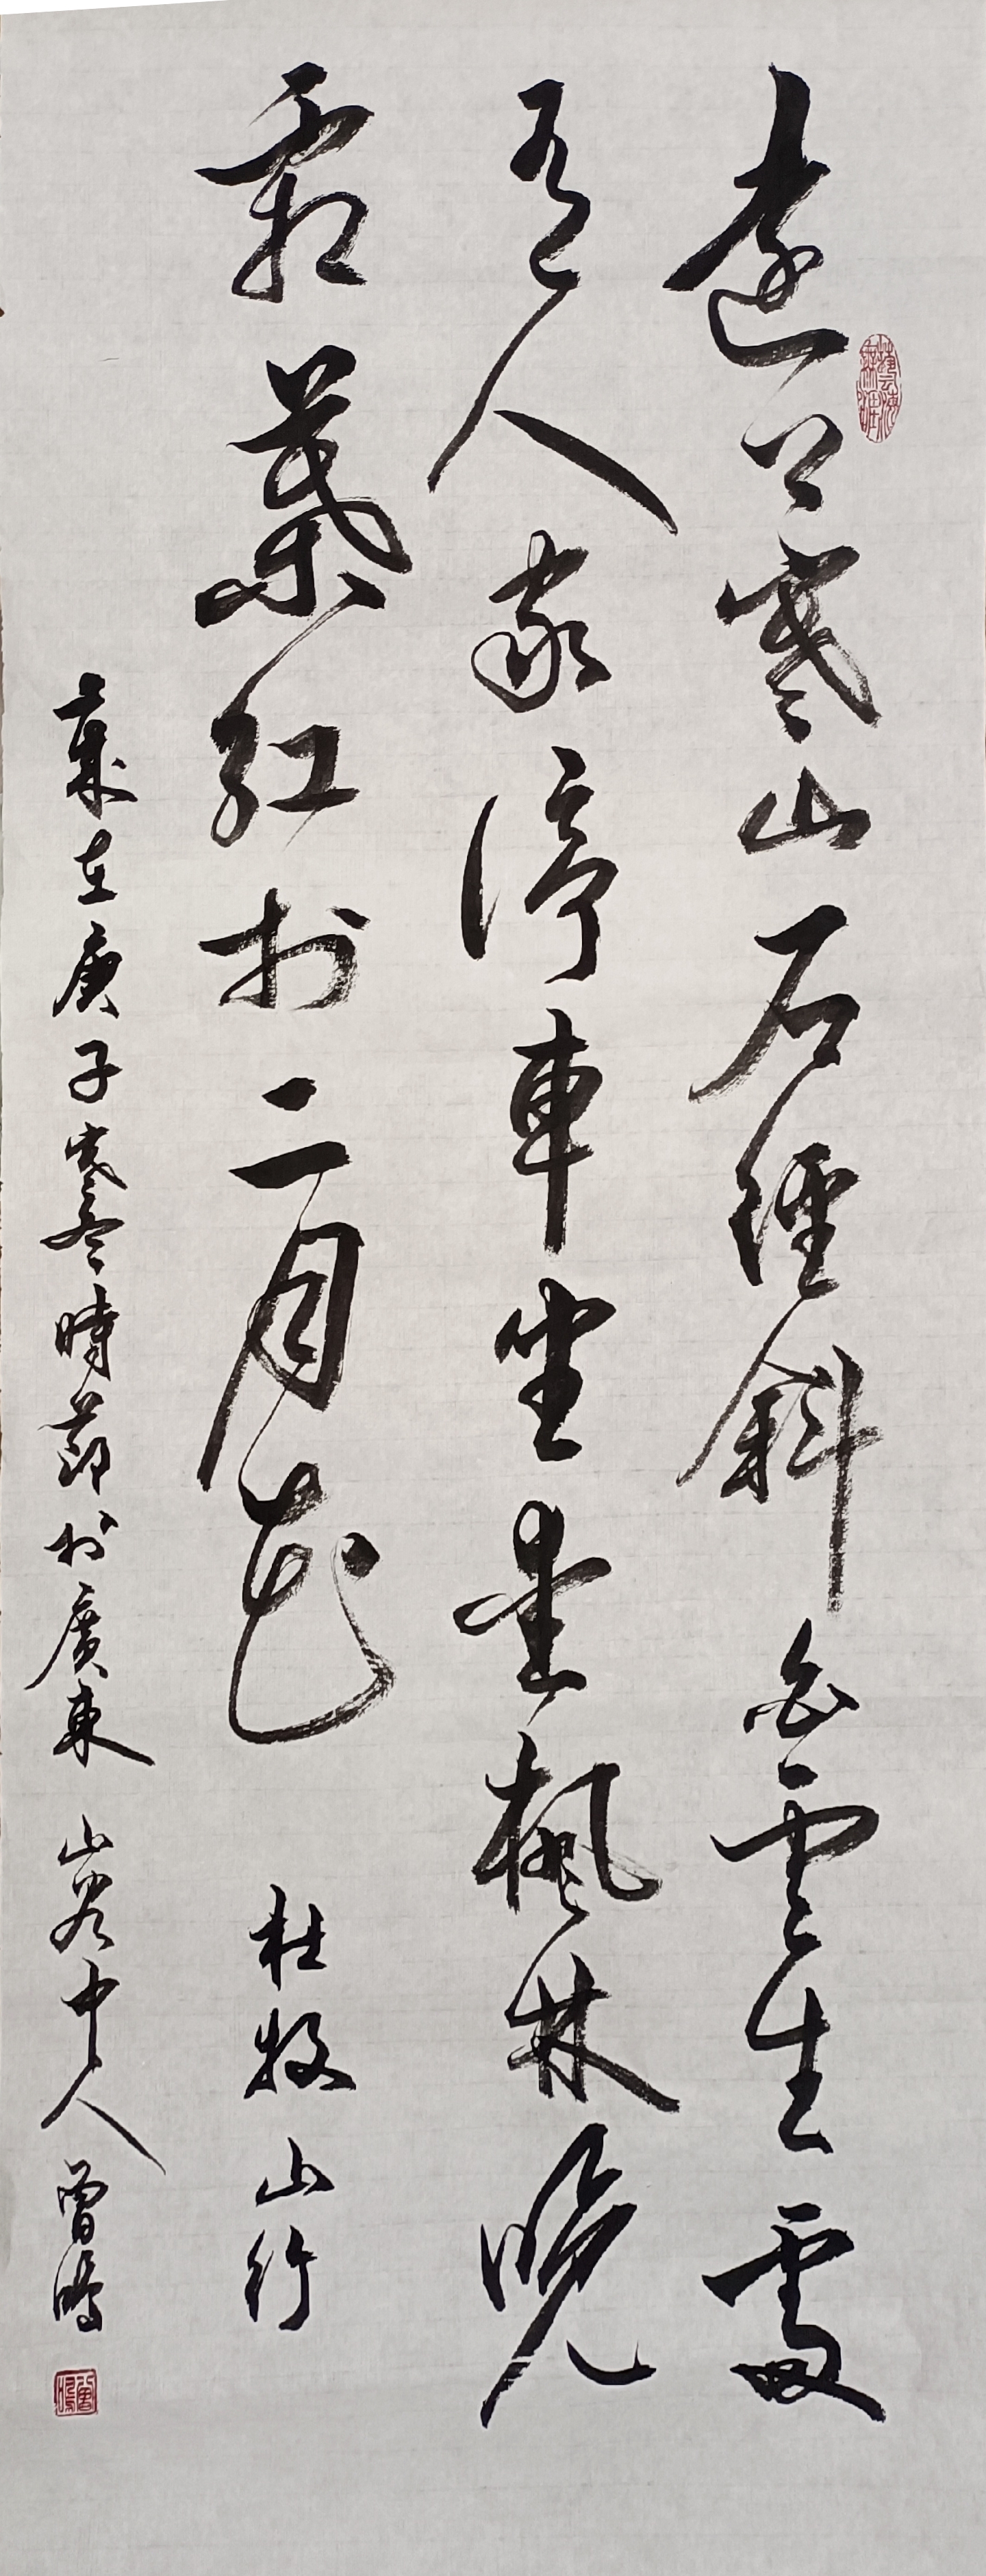 遠上寒山石徑斜白雲生處
有人家停車坐愛楓林晚
霜葉紅於二月花 杜牧 山行
歲在庚子寒冬時節於廣東 山谷中人 曾鳴
藝海無涯
曾鳴